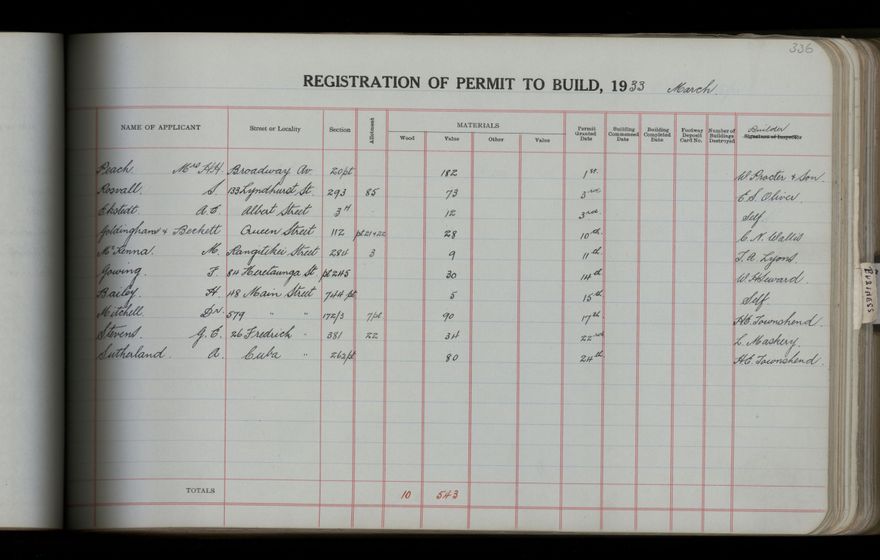 336
REGISTRATION OF PERMIT TO BUILD, 1933 March.
NAME OF APPLICANT Street or Locality Section Allotment MATERIALS Wood Value Other Value Permit Granted Date Building Commenced Date Building Completed Date Footway Deposit Card No. Number of Buildings Destroyed Builder Signature of Inspector
Peach. Mrs H.H. Broadway Av. 20pt 182 1st. W. Procter & Son.
Rosvall. S. 133 Lyndhurst St. 293 85 73 3rd. E.S. Oliver.
Ekstedt. A.E. Albert Street 3H 12 3rd. Self.
Goldingham & Beckett Queen Street 112 pt 21+22 28 10th. C.N. Wallis
McKenna. M. Rangitikei Street 284 3 9 11th. T.A. Lyons.
Gowing. F. 84 Heretaunga St pt 245 30 14th. W.H. Seward.
Bailey. H. 48 Main Street 744 pt 5 15th. Self.
Mitchell. Dr. 579 " " 172/3 7pt 90 17th. H.E. Townshend.
Stevens. G.E. 26 Fredrick " 381 22 34 22nd. L. Maskery.
Sutherland. A. Cuba " 262pt 80 24th. H.E. Townshend.
TOTALS 10 543